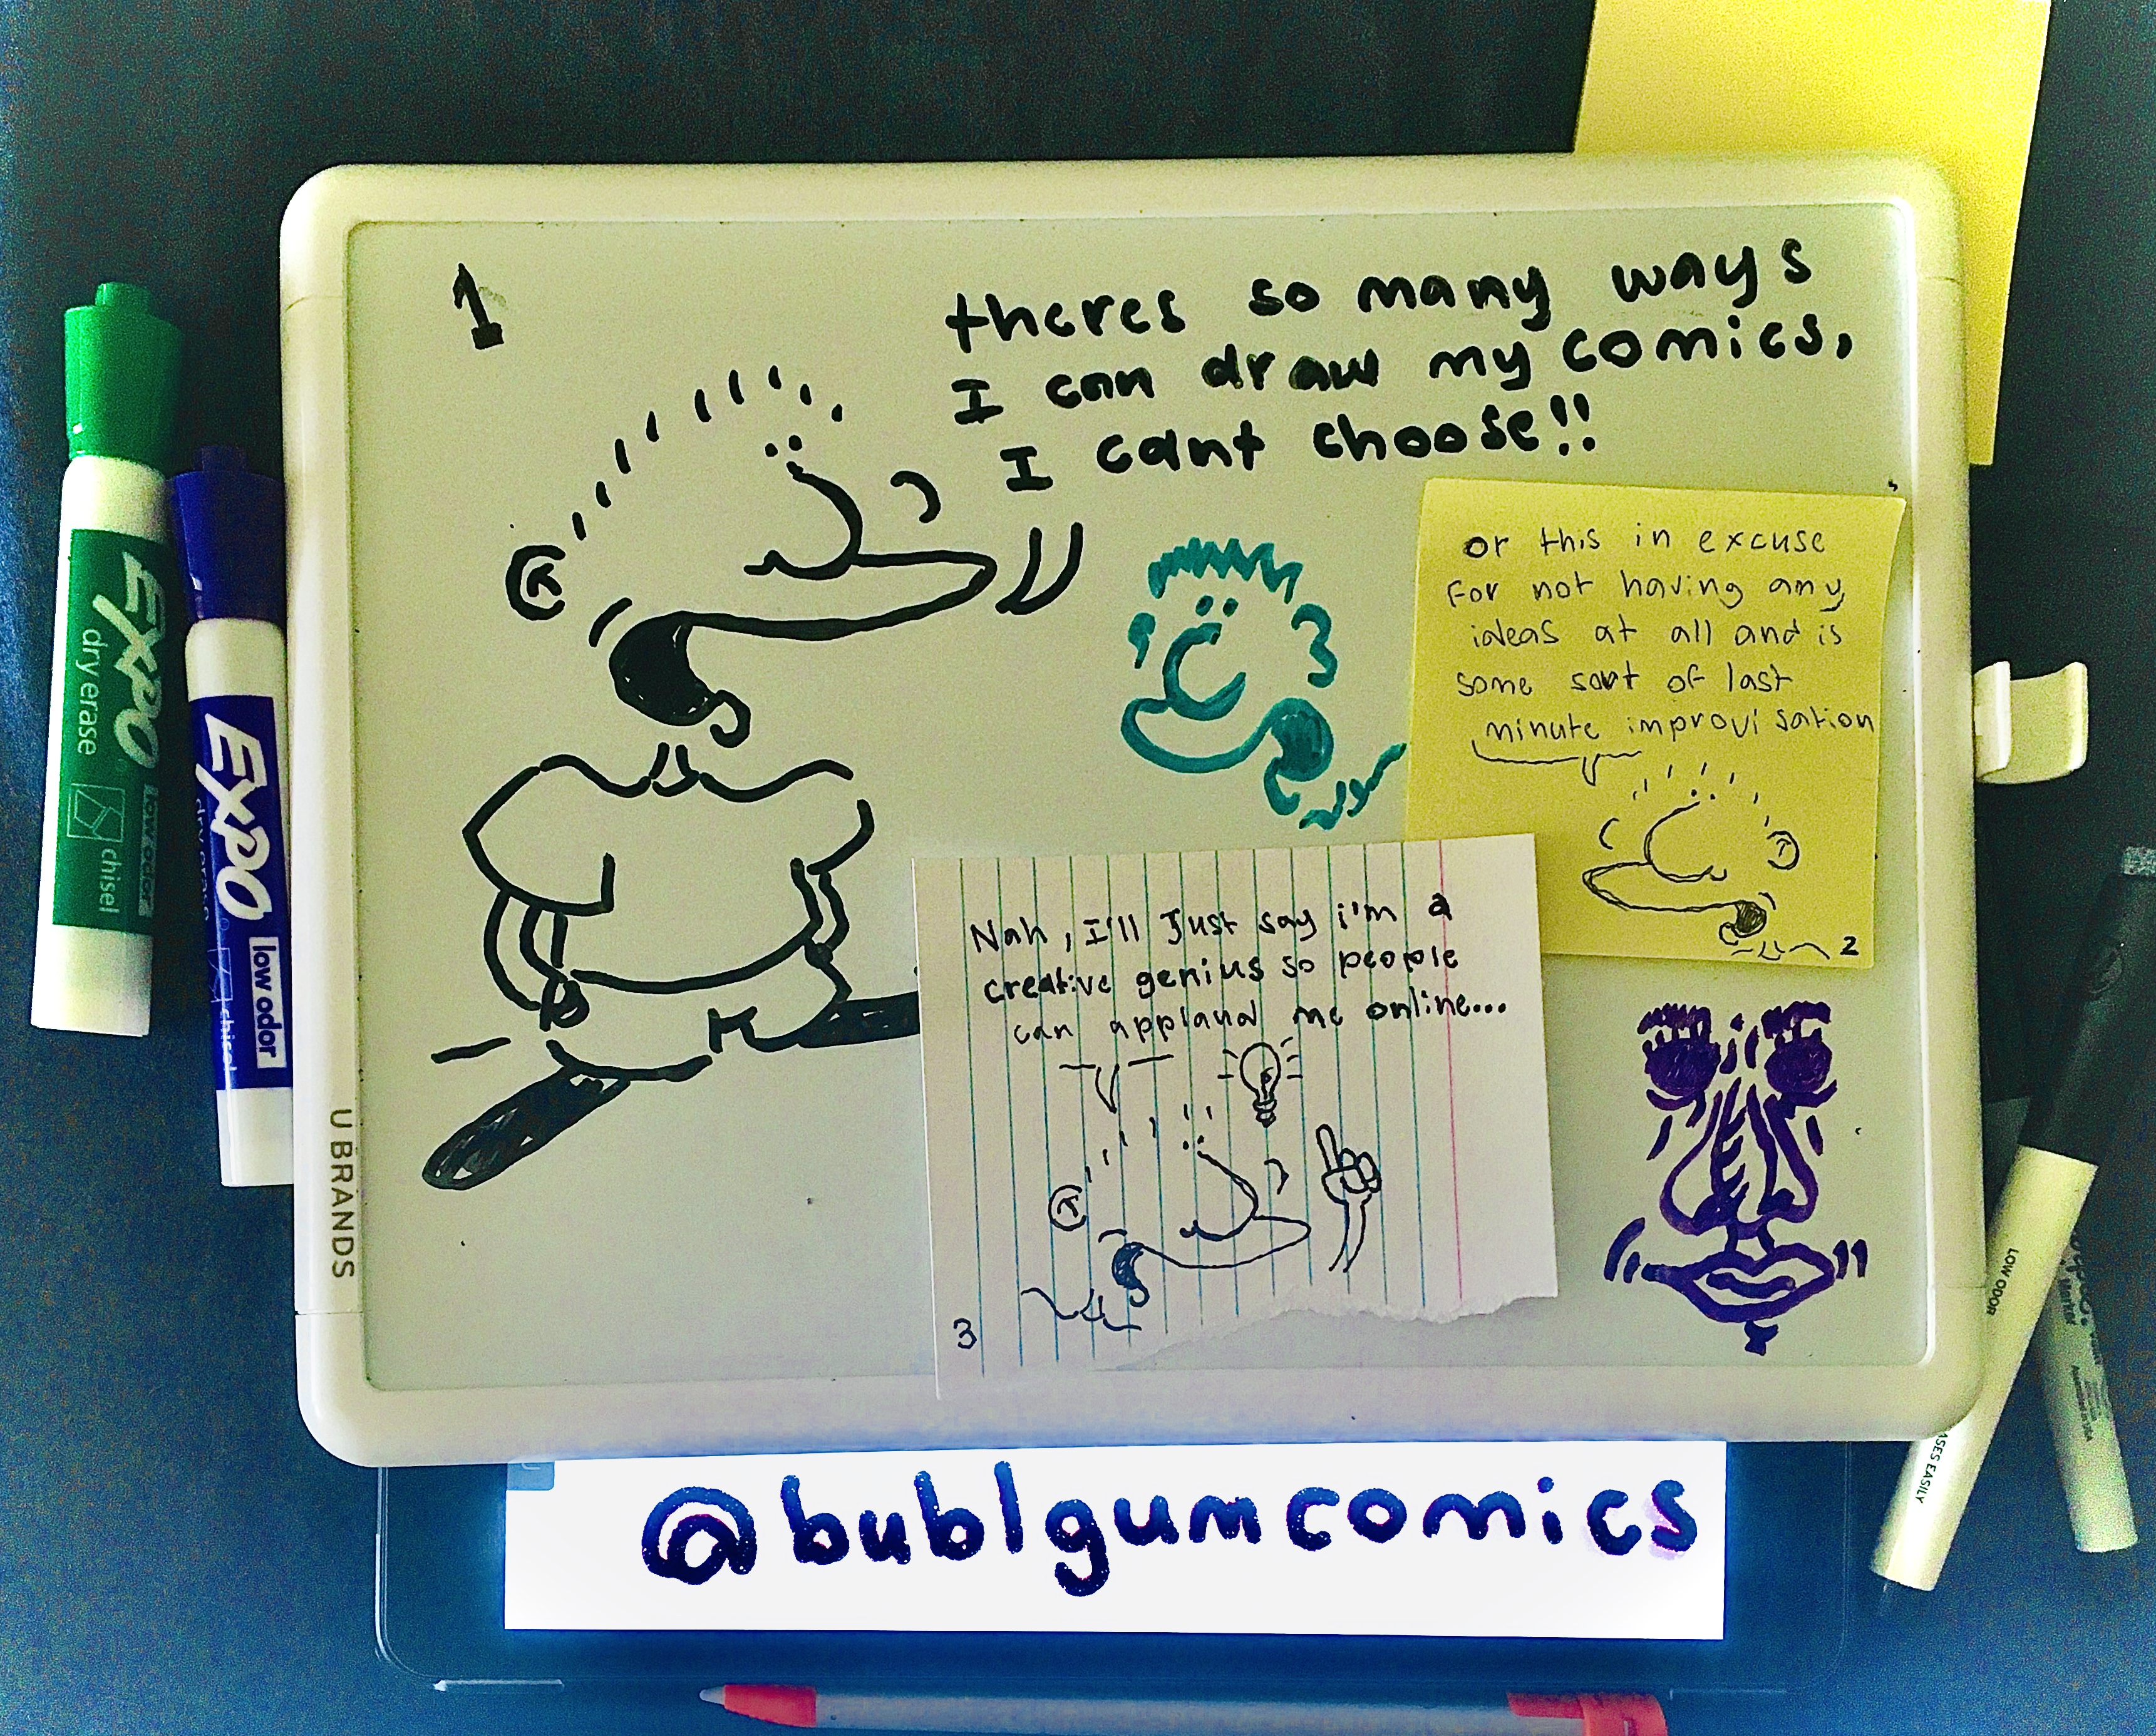 1
theres so many ways
I can draw my comics,
I cant choose!!
or this in excuse
for not having any
ideas at all and is
some sort of last
minute improvisation
2
Nah, I'll Just say i'm a
creative genius so people
can applaud me online...
3
@bublgumcomics
EXPO
dry erase
low odor
chisel
EXPO
low odor
chisel
U BRANDS
LOW ODOR
ASES EASILY